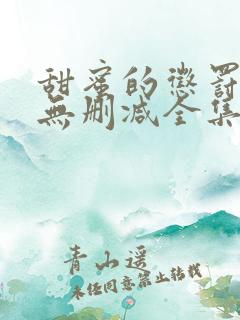 甜蜜的懲罰
無刪减全集
青山遥
未经同意禁止转载